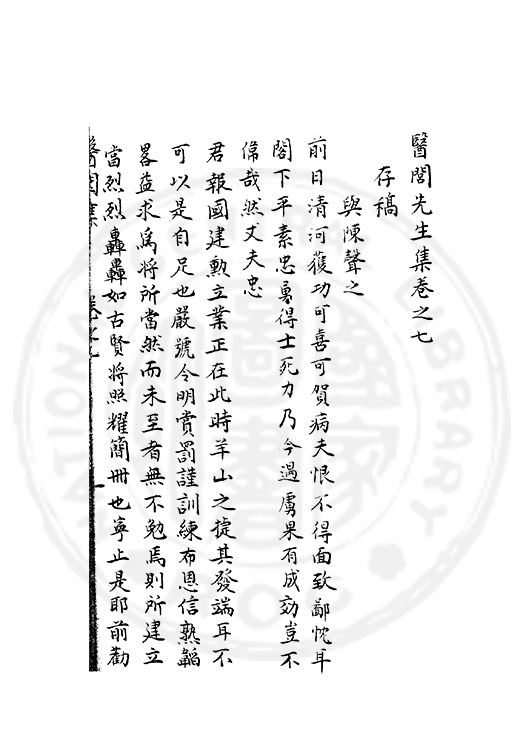 醫閭先生集卷之七
存稿
與陳聲之
前日清河獲功可喜可賀病夫恨不得面致鄙忱耳
閤下平素忠勇得士死力乃今遇虜果有成効豈不
偉哉然丈夫忠
君報國建勲立業正在此時羊山之捷其發端耳不
可以是自足也嚴號令明賞罰謹訓練布恩信熟韜
畧益求爲將所當然而未至者無不勉焉則所建立
當烈烈轟轟如古賢將照耀簡冊也寧止是耶前勸
醫閭集 卷之七 一